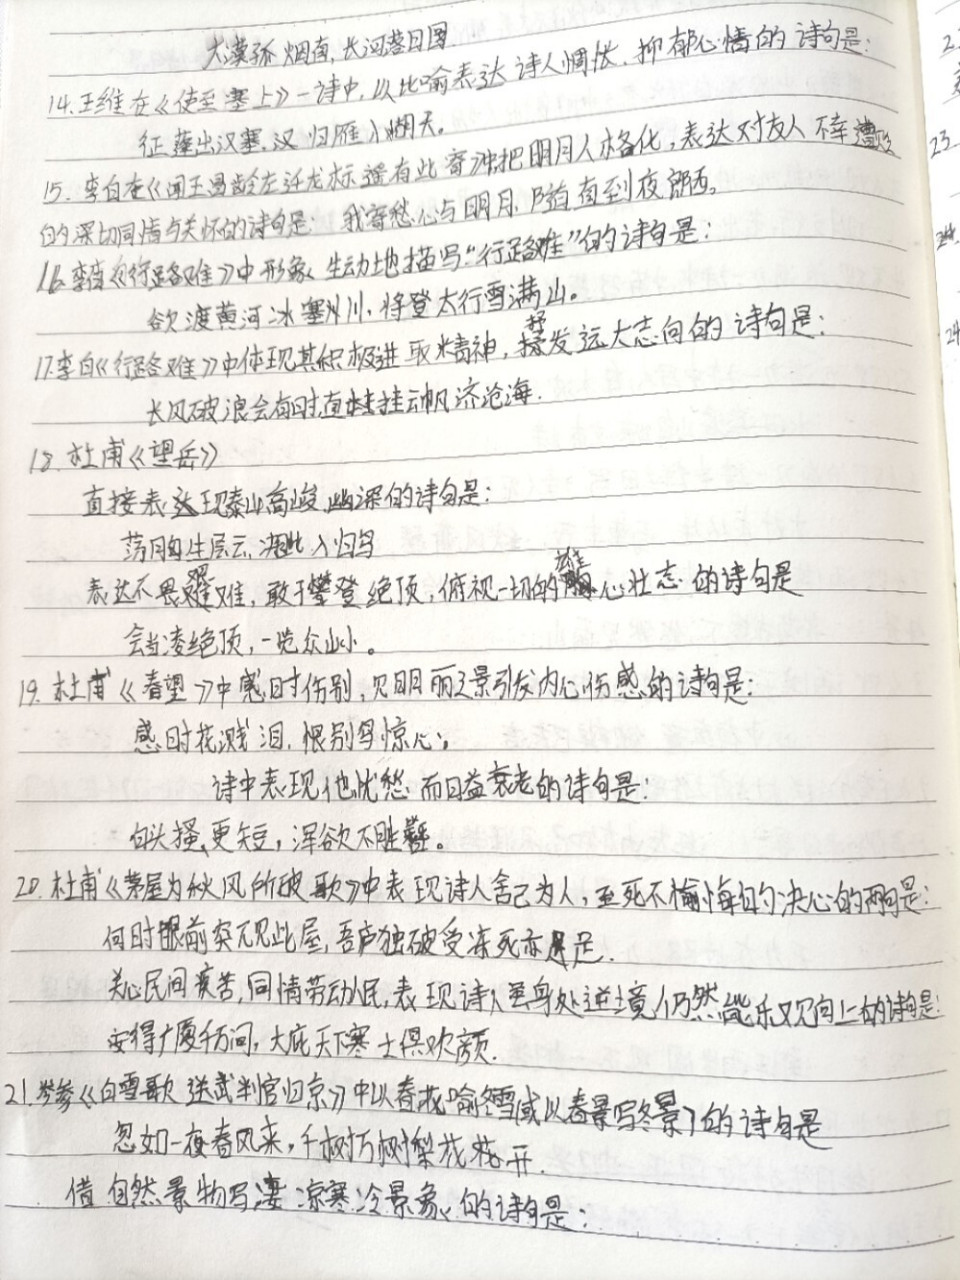 大漠孤烟直，长河落日圆.
14.王维在《使至塞上》一诗中，以比喻表达诗人惆怅、抑郁心情的诗句是：
征蓬出汉塞，归雁入胡天。
15.李白在《闻王昌龄左迁龙标遥有此寄》中把明月人格化，表达对友人不幸遭贬
的深切同情与关怀的诗句是 我寄愁心与明月，随直到夜郎西。
16.李白《行路难》中形象、生动地描写“行路难”的诗句是：
欲渡黄河冰塞川，将登太行雪满山。
17.李白《行路难》中体现其积极进取精神，抒发远大志向的诗句是：
长风破浪会有时，直挂云帆济沧海.
18.杜甫《望岳》
直接表达现泰山高峻、幽深的诗句是：
荡胸生层云，决眦入归鸟
表达不畏艰难，敢于攀登绝顶，俯视一切的雄心壮志的诗句是
会当凌绝顶，一览众山小。
19.杜甫《春望》中感时伤别，见明丽之景引发内心伤感的诗句是：
感时花溅泪，恨别鸟惊心；
诗中表现他忧愁而日益衰老的诗句是：
白头搔更短，浑欲不胜簪。
20.杜甫《茅屋为秋风所破歌》中表现诗人舍己为人，至死不悔的决心的两句是：
何时眼前突兀见此屋，吾庐独破受冻死亦足.
关心民间疾苦，同情劳动人民，表现诗人虽身处逆境仍然能乐观向上的诗句是：
安得广厦千万间，大庇天下寒士俱欢颜.
21.岑参《白雪歌送武判官归京》中以春花喻冬雪(或以春景写冬景)的诗句是
忽如一夜春风来，千树万树梨花花开.
借自然景物写凄凉寒冷景象的诗句是：
23.
24